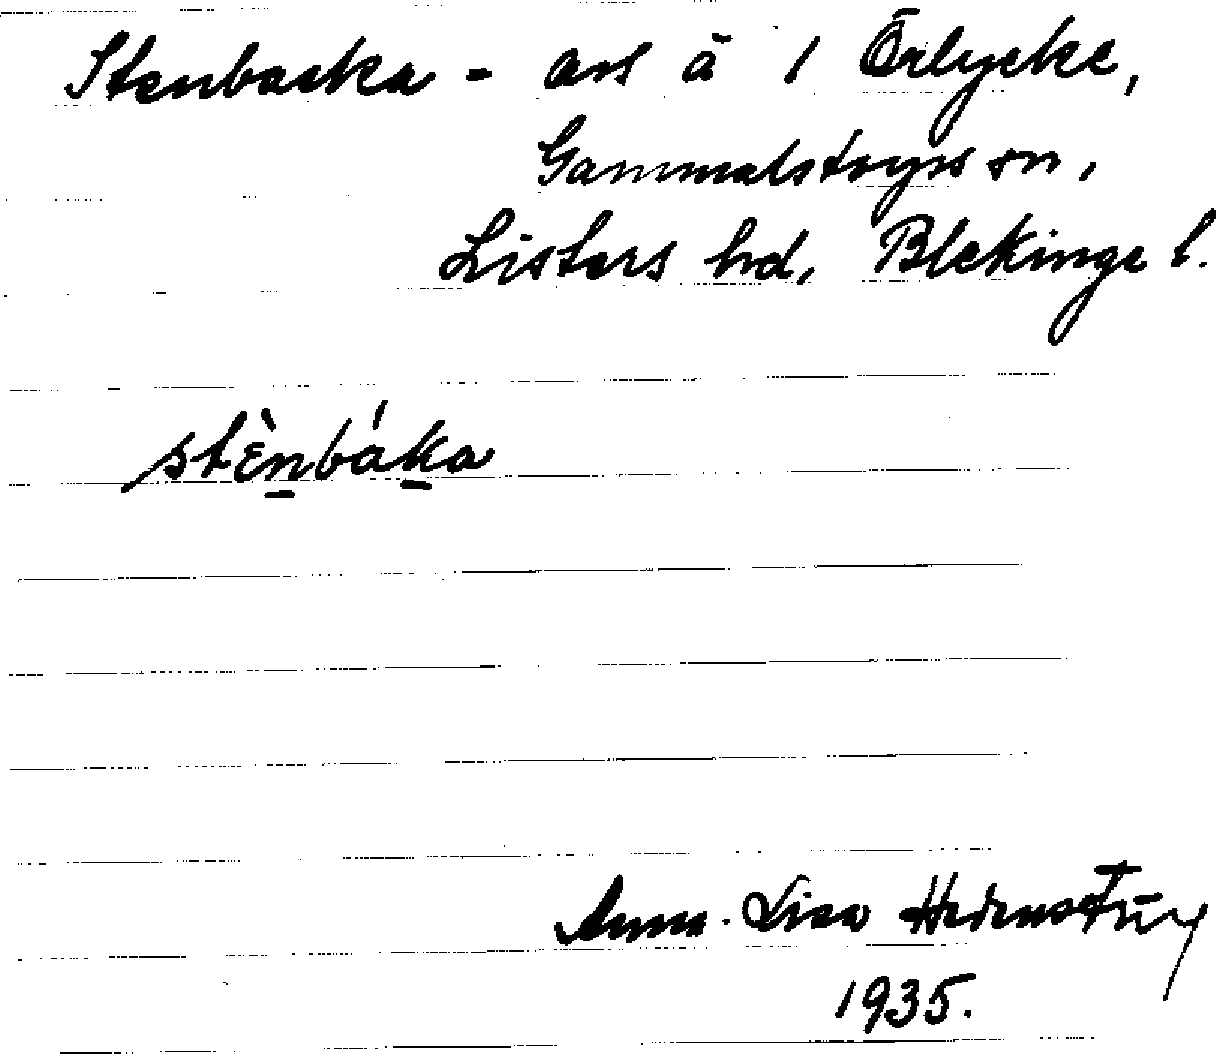 Stenbacka - avs å 1 Örlycke,
Gammalstorps sn,
Listers hd, Blekinge l.
stènbáka
Anna-Lisa
1935.